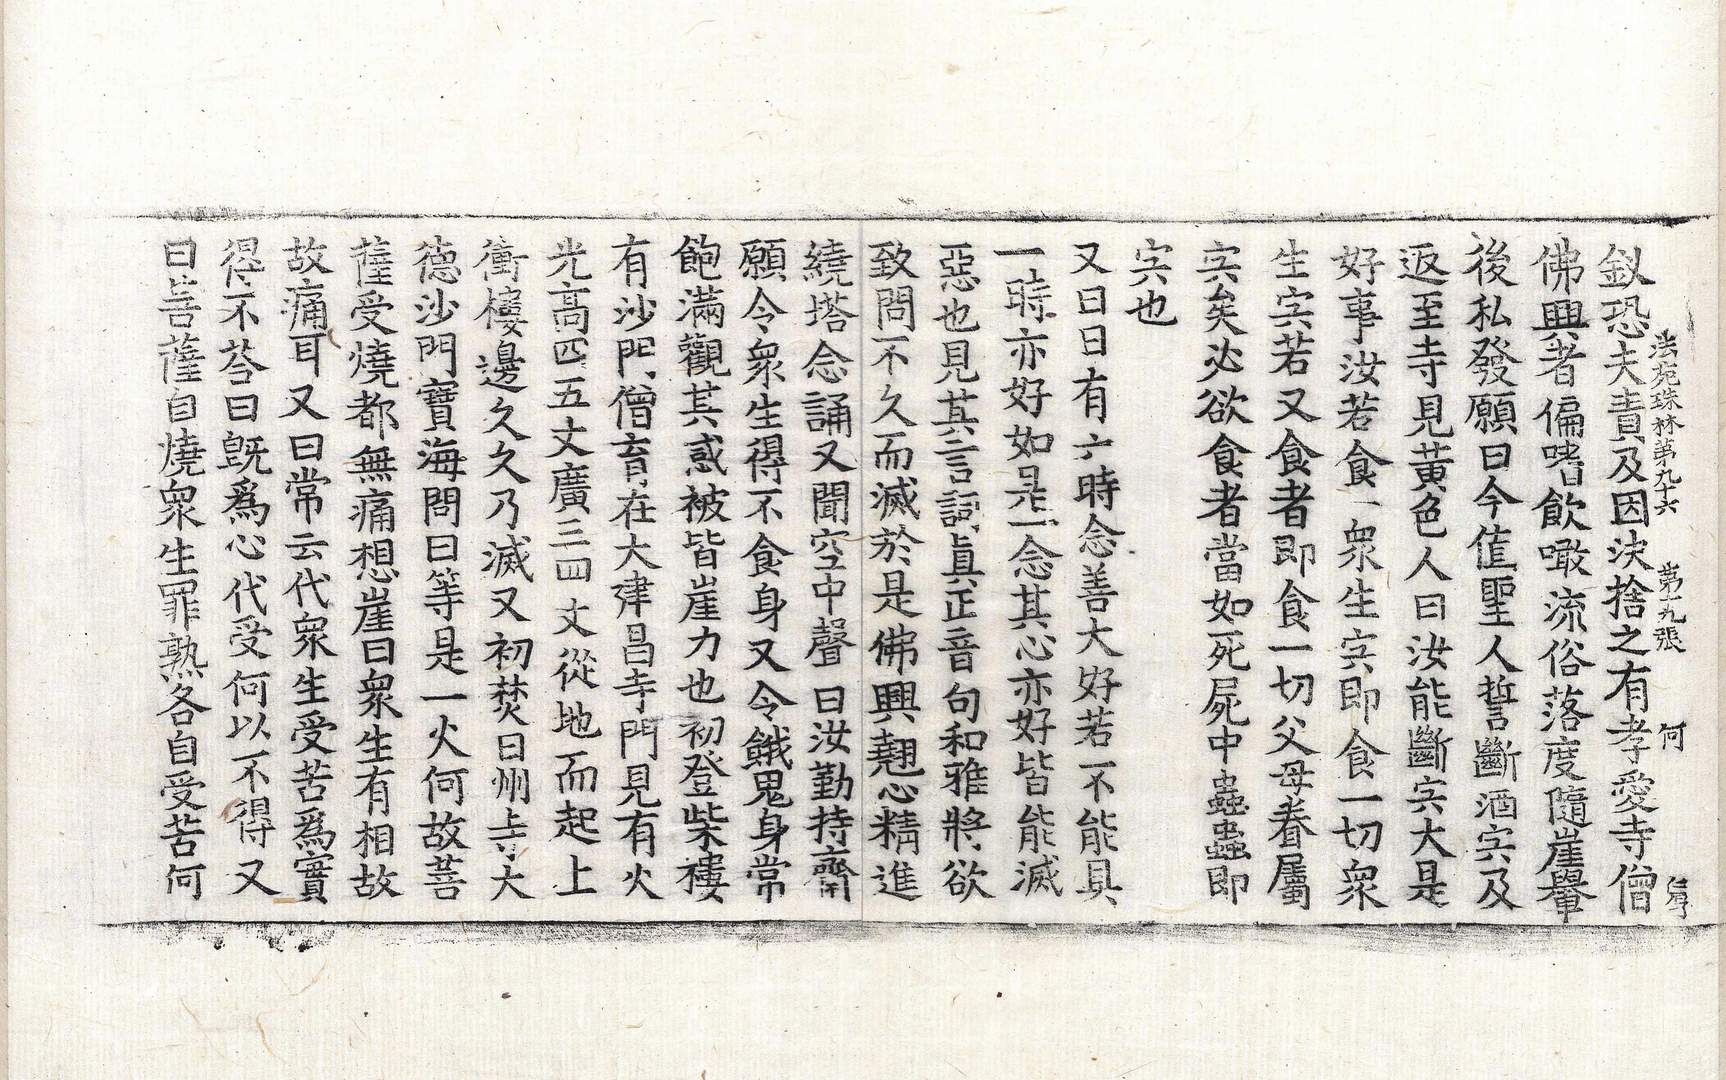 法苑珠林第九十六 第九張 何
釵恐夫責及因決捨之有孝愛寺僧
佛興者偏嗜飲噉流俗落度隨崖轝
後私發願曰今值聖人誓斷酒宍及
返至寺見黃色人曰汝能斷宍大是
好事汝若食一衆生宍即食一切衆
生宍若又食者即食一切父母眷屬
宍矣必欲食者當如死屍中蟲蟲即
宍也
又曰日有六時念善大好若不能具
一時亦好如是一念其心亦好皆能滅
惡也見其言詞眞正音句和雅將欲
致問不久而滅於是佛興翹心精進
繞塔念誦又聞空中聲曰汝勤持齋
願令衆生得不食身又令餓鬼身常
飽滿觀其惑被皆崖力也初登柴樓
有沙門僧育在大建昌寺門見有火
光高四五丈廣三四丈從地而起上
衝樓邊久久乃滅又初焚日州寺大
德沙門寶海問曰等是一火何故菩
薩受燒都無痛想崖曰衆生有相故
故痛耳又曰常云代衆生受苦爲實
得不荅曰旣爲心代受何以不得又
曰菩薩自燒衆生罪熟各自受苦何